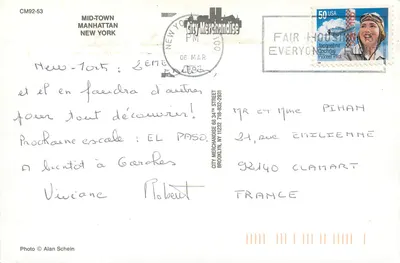 CM92-53
MID-TOWN
MANHATTAN
NEW YORK
New-York : 2ème
et il en faudra d'autres
pour tout découvrir!
Prochaine escale : EL PASO
A bientôt à Garches
Viviane Robert
Photo © Alan Schein
City Merchandise
CITY MERCHANDISE 68 34TH STREET
BROOKLYN, NY 11232 718-832-2931
NEW YORK
PM
06 MAR
FAIR HOUSING
EVERYONE
50 USA
MR et MME PIHAN
21, rue EMILIENNE
92140 CLAMART
FRANCE